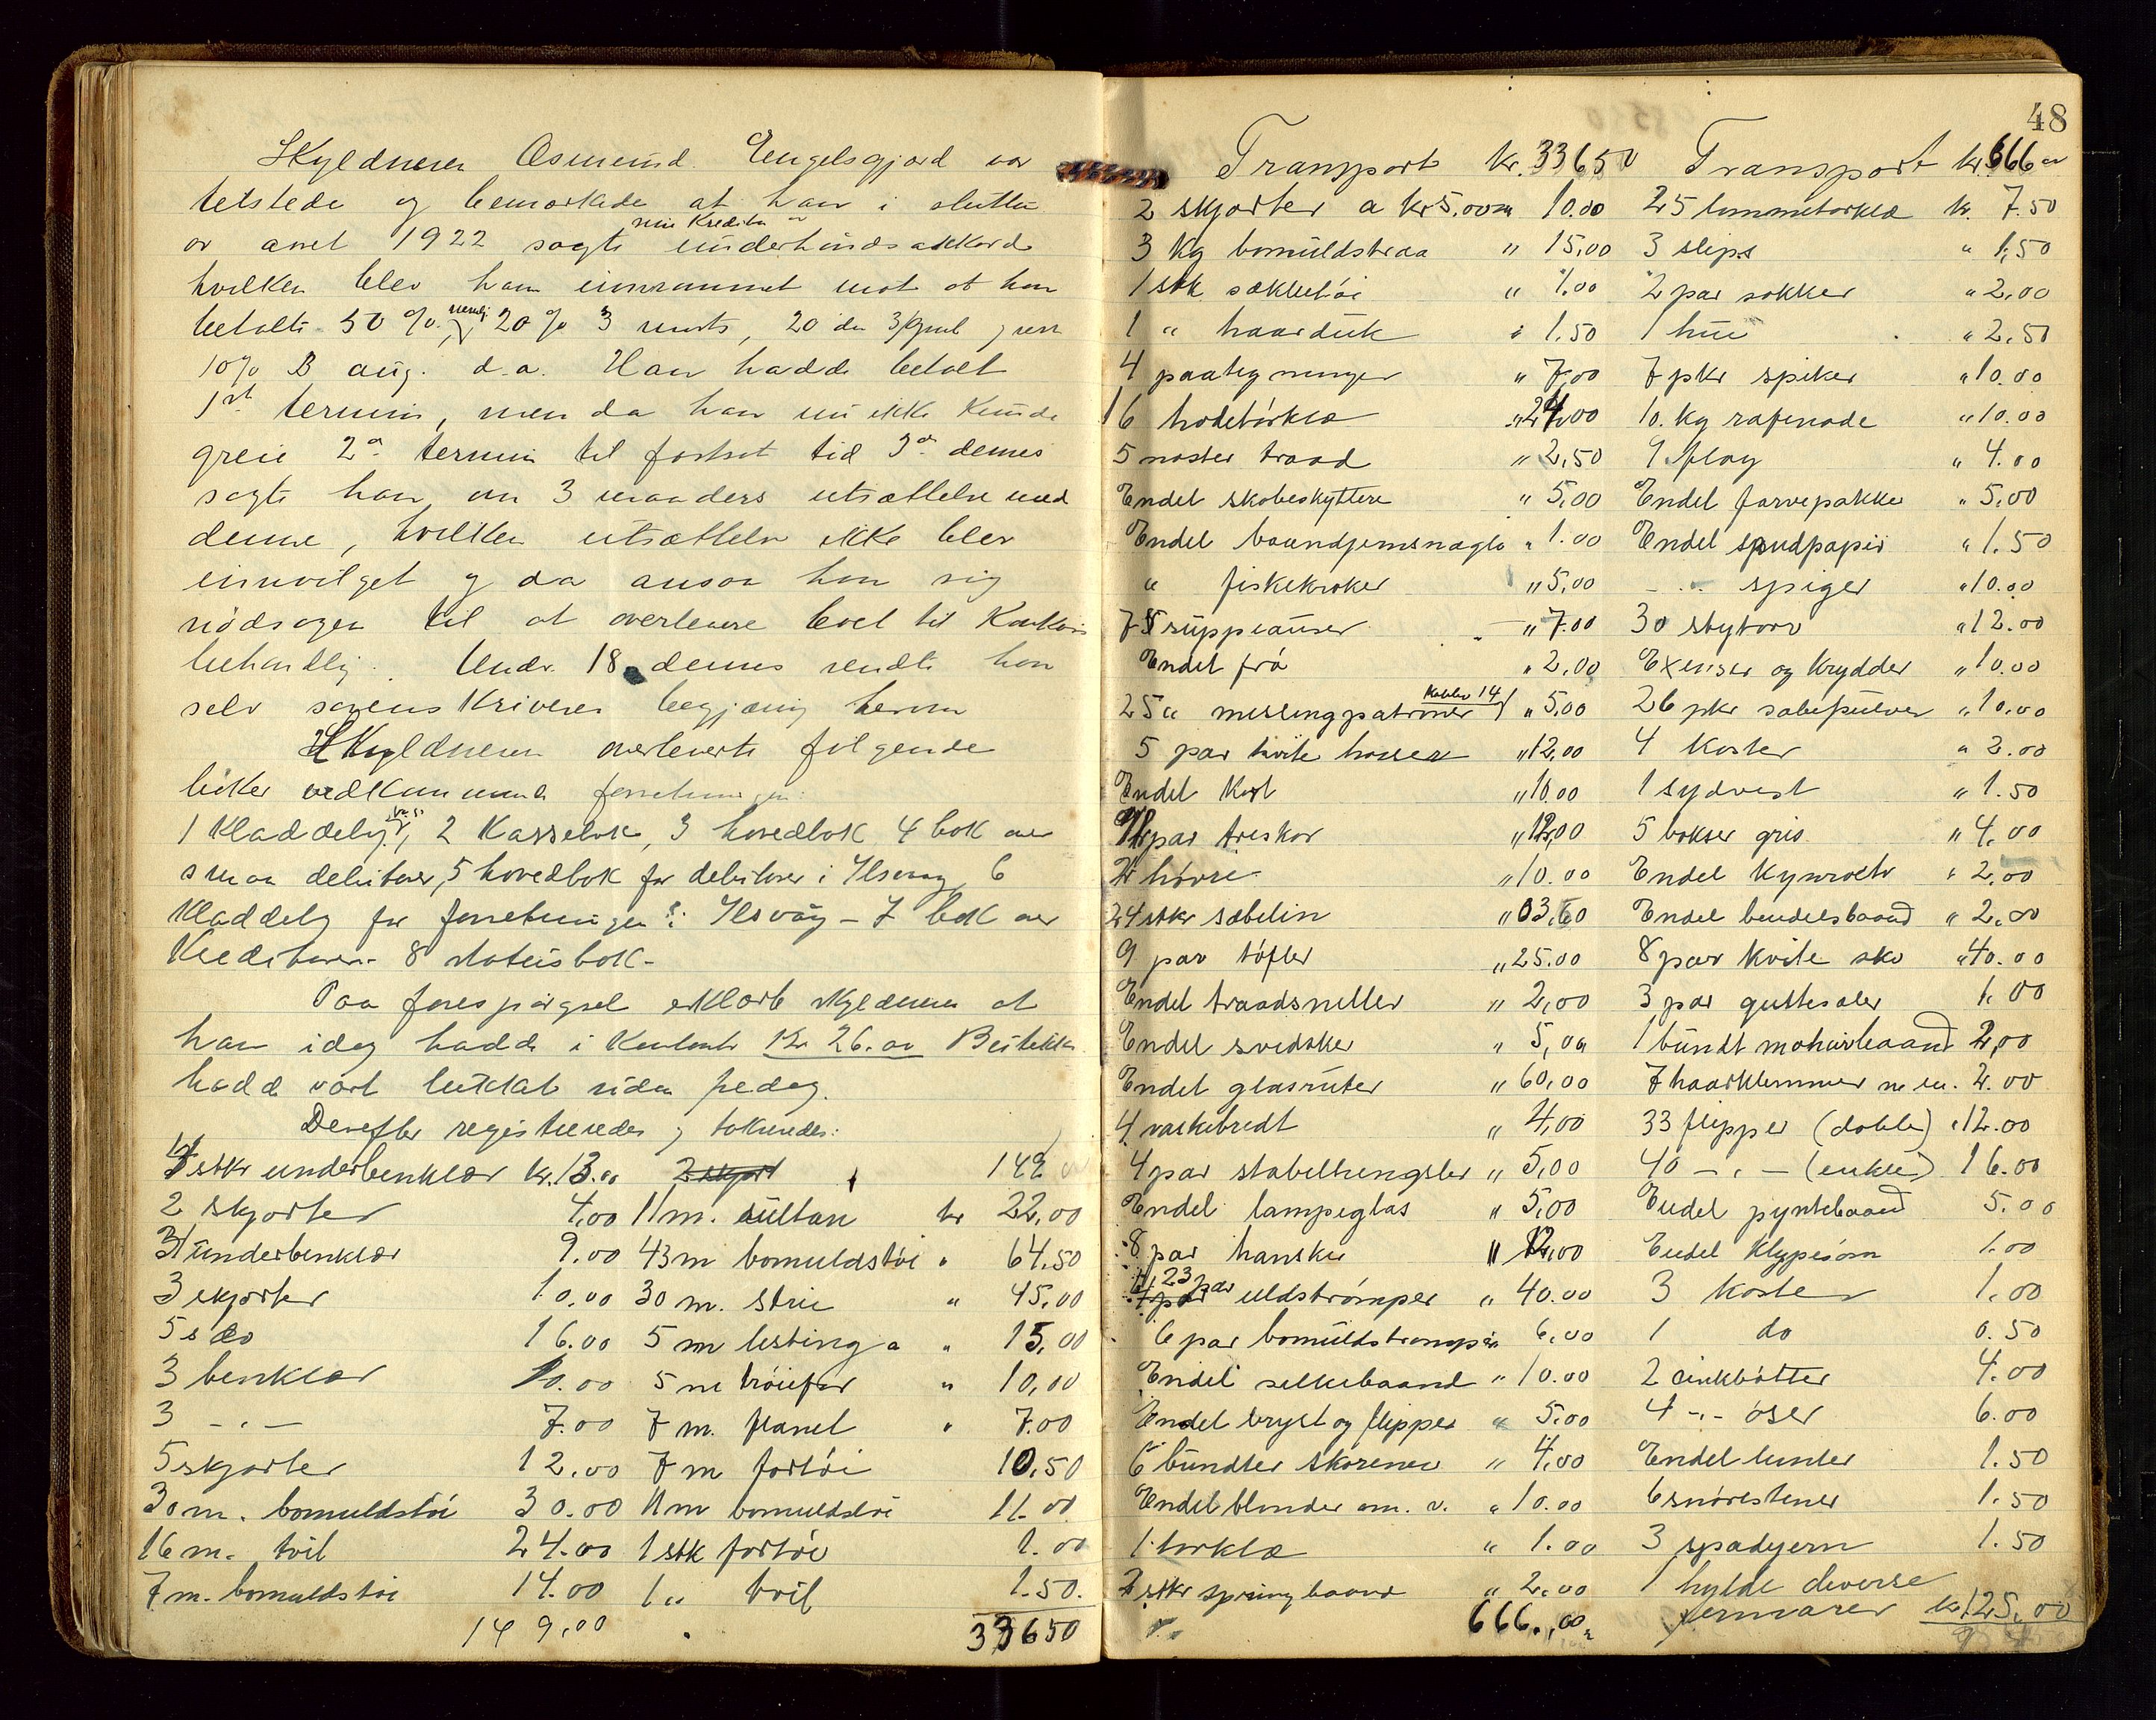 Skyldneren Osmund Engelsgjerd var
tilstede og bemerkede at han i slutten
av aaret 1922 søgte sine Kreditorer underhaandsakkord
hvilken blev ham indrømmet mot at han
betalte 50 % nemlig 20 % 3 marts, 20 den 3 april og resten
10 % 3 aug. d.a. Han hadde betalt
1ste termin, men da han nu ikke kunde
greie 2den termin til fastsat tid 3die dennes
søgte han om 3 maaneders utsættelse med
denne, hvilken utsættelse ikke blev
indvilget og da ansaa han sig
nødsagen til at overlevere boet til Konkurs
behandling. Under 18 dennes sendte han
selv sorenskriveren begjæring herom
Skyldneren overleverte følgende
bøker vedkommende forretningen:
1 Kladdebog, 2 Kassebok, 3 hovedbok 4 bok over
smaa debitorer, 5 hovedbok for debitorer i Ilsvaag, 6
Kladdebog for forretningen i Ilsvaag - 7 bok over
Kreditorer - 8 statusbok -
Paa forespørgsel erklærte skyldneren at
han idag hadde i Kontant Kr 26.00 Butikken
hadde vært lukket siden fredag.
Derefter registreredes og takseredes:
stkr underbenklær kr. 13.00 2 skjort 149
2 skjorter 4,00 11 m. sultan kr 22,00
3 underbenklær 9.00 43 m bomuldstøi " 64.50
3 skjorter 10.00 30 m. strie " 45,00
5 s do 16.00 5 m lesting a " 15,00
3 benklær 10.00 5 m trøiefor " 10,00
3 - " - 7.00 7 m. flanel " 7.00
5 skjorter 12.00 7 m fortøi 10,50
30 m. bomuldstøi 30.00 11 m bomuldstøi 11.00
16 m. tvil 24.00 1 stk fortøi 1.00
7 m. bomuldstøi 14.00 1 " tvil 1.50.
149,00 33650
48
Transport kr. 33650
2 skjorter a kr 5.00 10.00
3 kg bomuldstraa " 15,00
1 stk sækketøi " 1.00
1 " haarduk " 1.50
4 paategninger " 7,00
16 hodetørklæ " 24,00
5 nøster traad " 2,50
Endel skobeskyttere " 5,00
Endel baandjernsnagle " 1.00
" fiskekroker " 5,00
7 suppeauser " 7.00
Endel frø " 2,00
25 " messingpatroner Kaliber 14 " 5,00
5 par hvite hoser " 12,00
Endel Kost " 10.00
par treskor " 12,00
2 høvre " 10.00
24 stkr sæbelin " 03,60
9 par tøfler " 25.00
Endel traadsneller " 2,00
Endel svedsker " 5,00
Endel glasruter " 60,00
4 vaskebredt " 4,00
4 par stabelhengsler " 5,00
Endel lampeglas " 5,00
8 par hansker " 12,00
4 par 23 par uldstrømper " 40.00
6 par bomuldstrømper 6,00
Endel silkebaand " 10.00
Endel bryst og flipper " 5,00
6 bundter skorener " 4,00
Endel blonder om. v. " 10.00
1 tørklæ " 1.00
2 stkr springbaand " 2,00
666,00
Transport kr. 666
25 lommetørklæ kr. 7.50
3 slips " 1,50
2 par sokker " 2,00
1 hue " 2,50
7 pkr spiker " 10.00
10 kg rafinade " 10.00
9 flag " 4.00
Endel farvepakker " 5,00
Endel sandpapir " 1.50
- " - spiger " 10.00
30 skytorv " 12.00
Exenser og krydder " 10.00
26 pkr sæbepulver " 10.00
4 koster " 2.00
1 sydvest " 1.50
5 bokser gris " 4.00
Endel kynrøk " 2,00
Endel bendelsbaand " 2,00
8 par kvite sko " 40.00
3 par guttesaler 1.00
1 bundt mohairbaand 2,00
7 haarklemmer m. m. 2.00
33 flipper (doble) " 12.00
40 - " - (enkle) 16.00
Endel pyntebaand 5.00
Endel klypesøm 1.00
3 koster 1.00
1 do 0.50
2 sinkbøtter 4.00
4 - " - øser 6.00
Endel lunter 1.50
6 snørestener 1.50
3 spadjern 1.50
1 hylde diverse
jernvarer kr. 125,00